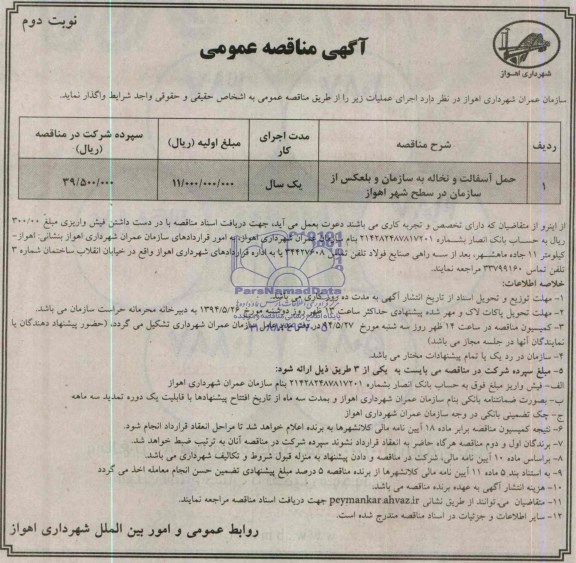 نوبت دوم
شهرداری اهواز
آگهی مناقصه عمومی
سازمان عمران شهرداری اهواز در نظر دارد اجرای عملیات زیر را از طریق مناقصه عمومی به اشخاص حقیقی و حقوقی واجد شرایط واگذار نماید.
ردیف شرح مناقصه مدت اجرای کار مبلغ اولیه (ریال) سپرده شرکت در مناقصه (ریال)
۱ حمل آسفالت و نخاله به سازمان و بلعکس از سازمان در سطح شهر اهواز یک سال ۱۱/۰۰۰/۰۰۰/۰۰۰ ۳۹/۵۰۰/۰۰۰
از اینرو از متقاضیان که دارای تخصص و تجربه کاری می باشند دعوت بعمل می آید، جهت دریافت اسناد مناقصه با در دست داشتن فیش واریزی مبلغ ۳۰۰/۰۰۰
ریال به حساب بانک انصار بشماره ۲۱۴۲۸۲۴۸۷۸۱۷۲۰۱ بنام عمران شهرداری اهواز، به امور قراردادهای سازمان عمران شهرداری اهواز بنشانی: اهواز-
کیلومتر ۱۱ جاده ماهشهر، بعد از سه راهی صنایع فولاد تلفن تماس ۳۴۴۲۷۶۰۸ یا به اداره قراردادهای شهرداری اهواز واقع در خیابان انقلاب ساختمان شماره ۳
تلفن تماس ۳۳۷۹۹۱۶۰ مراجعه نمایند.
خلاصه اطلاعات:
۱- مهلت توزیع و تحویل اسناد از تاریخ انتشار آگهی به مدت ده روز کاری می باشد.
۲- مهلت تحویل پاکات لاک و مهر شده پیشنهادی حداکثر ساعت ۱۳ ظهر روز دوشنبه مورخ ۱۳۹۴/۵/۲۶ به دبیرخانه محرمانه حراست سازمان می باشد.
۳- کمیسیون مناقصه در ساعت ۱۴ ظهر روز سه شنبه مورخ ۹۴/۵/۲۷ در دفتر مدیرعامل سازمان عمران شهرداری تشکیل می گردد، (حضور پیشنهاد دهندگان یا
نمایندگان آنها در جلسه مجاز می باشد)
۴- سازمان در رد یک یا تمام پیشنهادات مختار می باشد.
۵- مبلغ سپرده شرکت در مناقصه می بایست به یکی از ۳ طریق ذیل ارائه شود:
الف- فیش واریز مبلغ فوق به حساب بانک انصار بشماره ۲۱۴۲۸۲۴۸۷۸۱۷۲۰۱ بنام سازمان عمران شهرداری اهواز
ب- بصورت ضمانتنامه بانکی بنام سازمان عمران شهرداری اهواز و بمدت سه ماه از تاریخ افتتاح پیشنهادها با قابلیت یک دوره تمدید سه ماهه
ج- چک تضمینی بانکی در وجه سازمان عمران شهرداری اهواز
۶- نتیجه کمیسیون مناقصه برابر ماده ۱۸ آیین نامه مالی کلانشهرها به برنده اعلام خواهد شد تا مراحل انعقاد قرارداد انجام شود.
۷- برندگان اول و دوم مناقصه هرگاه حاضر به انعقاد قرارداد نشوند سپرده شرکت در مناقصه آنان به ترتیب ضبط خواهد شد.
۸- براساس ماده ۱۰ آیین نامه مالی، شرکت در مناقصه و دادن پیشنهاد به منزله قبول شروط و تکالیف شهرداری می باشد.
۹- به استناد بند ۵ ماده ۱۱ آیین نامه مالی کلانشهرها از برنده مناقصه ۵ درصد مبلغ پیشنهادی تضمین حسن انجام معامله اخذ می گردد
۱۰- هزینه انتشار آگهی به عهده برنده مناقصه می باشد.
۱۱- متقاضیان می توانند از طریق نشانی peymankar.ahvaz.ir جهت دریافت اسناد مناقصه مراجعه نمایند.
۱۲- سایر اطلاعات و جزئیات در اسناد مناقصه مندرج شده است.
روابط عمومی و امور بین الملل شهرداری اهواز
ParsNamadData